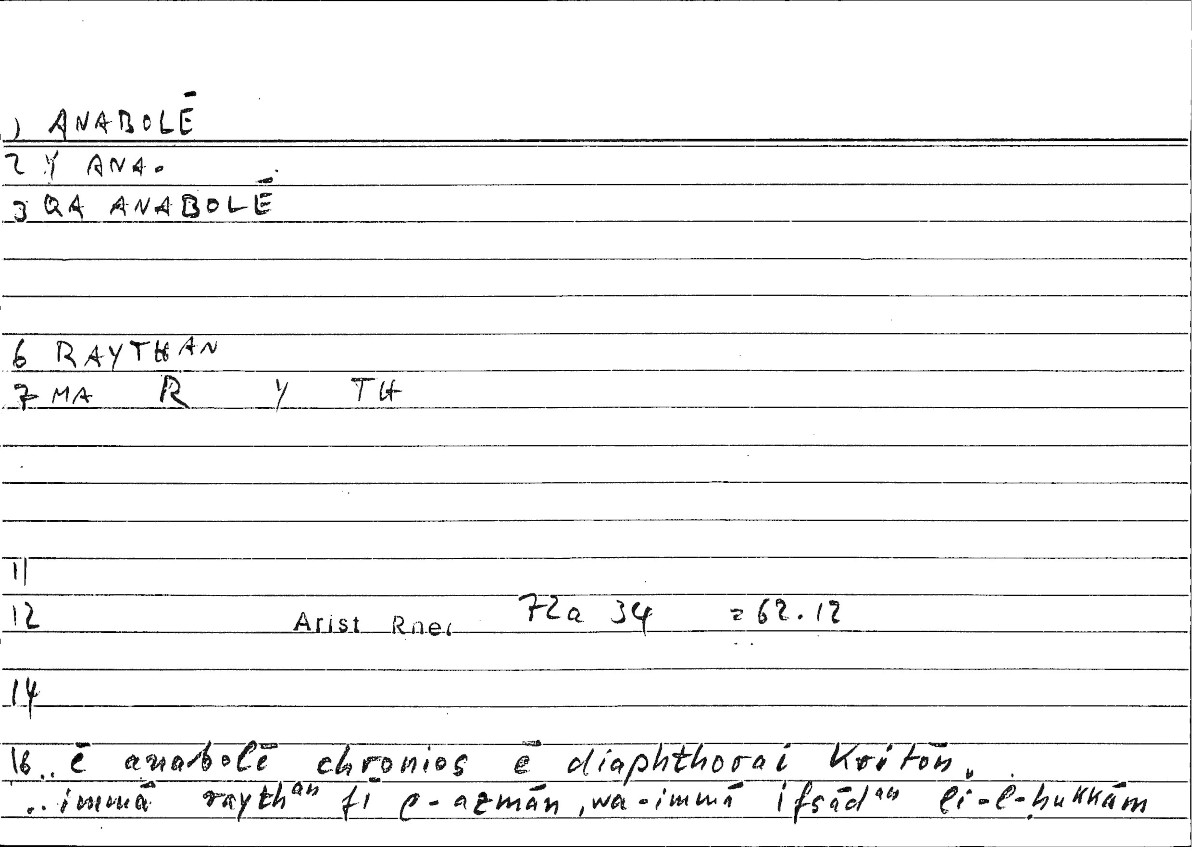 1) ANABOLĒ
2 Y ANA.
3 QA ANABOLĒ
6 RAYTHAN
7 MA R Y TH
11
12 Arist Rhet 72a 34 =62.12
14
16 .. ē anabolē chronios ē diaphthorai kritōn.
.. immā raythᵃⁿ fī l-azmān, wa-immā ifsādᵃⁿ li-l-ḥukkām